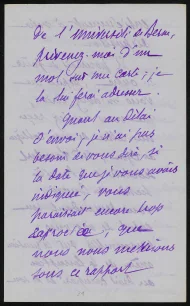 de l'Université, à Berne,
prévenez-moi d'un
mot, sur une carte ; je
la lui ferai adresser.
Quant au délai
d'envoi, je n'ai pas
besoin de vous dire, si
la date que je vous avais
indiquée, vous
paraissait encore trop
rapprochée, que
nous nous mettrions
sous ce rapport